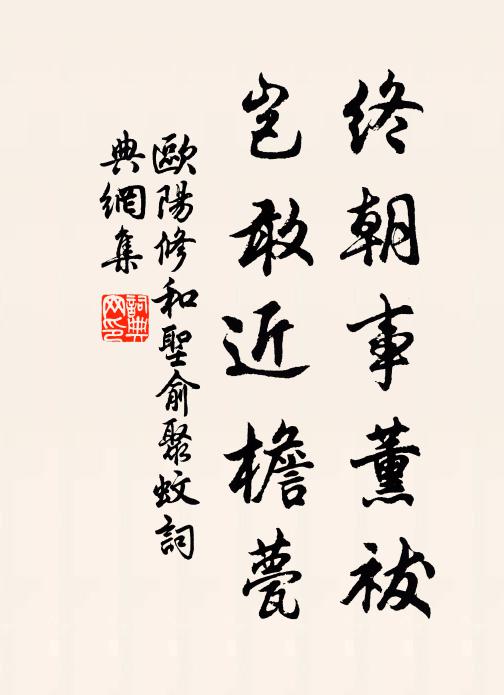 終朝事薰祓
豈敢近檐甍
歐陽修和聖俞聚蚊詞
典網集
詞典網印